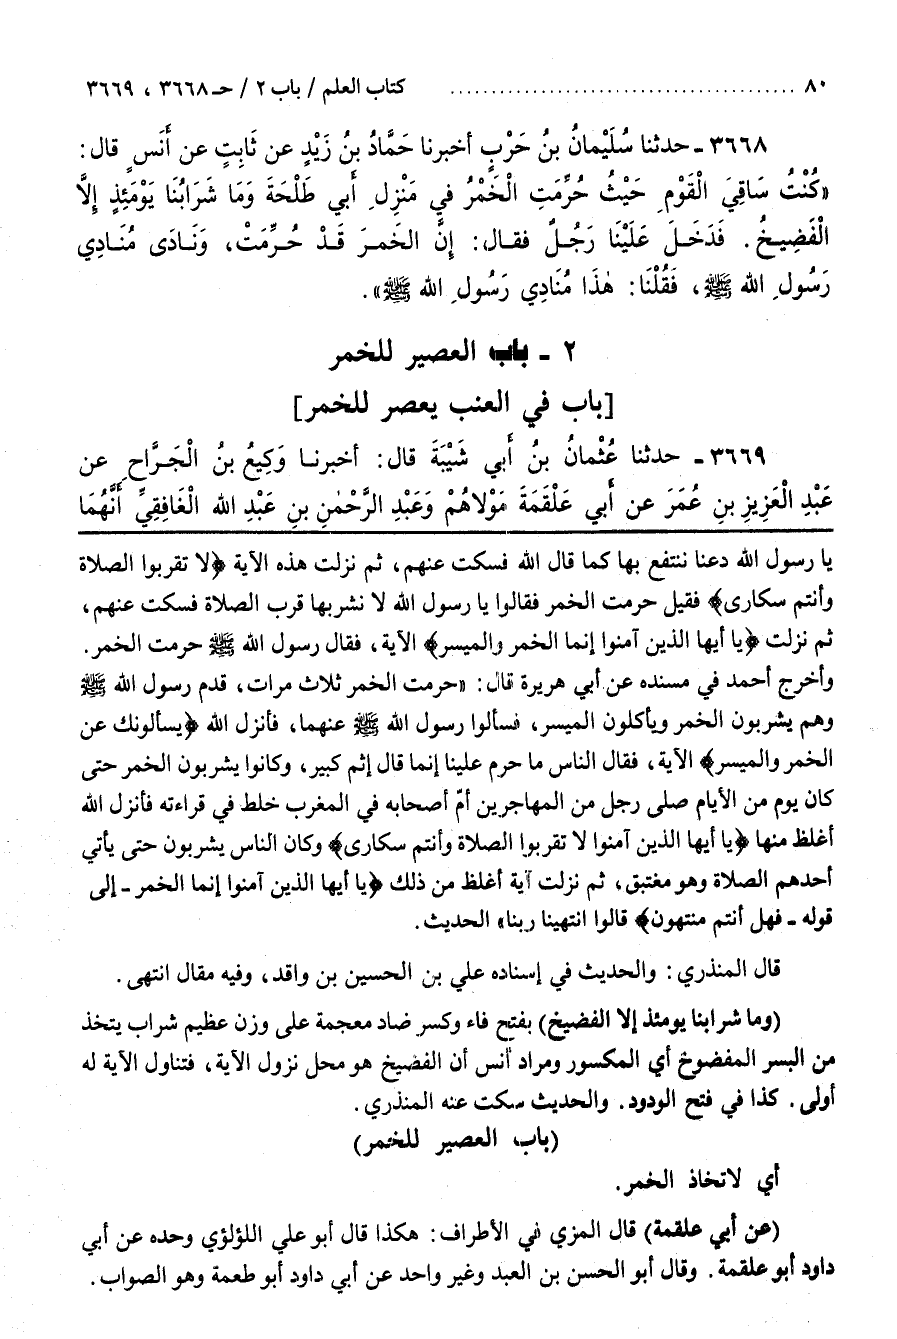 ٨٠ ........................................ كتاب العلم / باب ٢ / حـ ٣٦٦٨ ، ٣٦٦٩
٣٦٦٨ ـ حدثنا سُلَيْمانُ بنُ حَرْبٍ أخبرنا حَمَّادُ بنُ زَيْدٍ عن ثَابِتٍ عن أَنَسٍ قال:
«كُنْتُ سَاقِيَ الْقَوْمِ حَيْثُ حُرِّمَتِ الْخَمْرُ في مَنْزِلِ أبي طَلْحَةَ وَمَا شَرَابُنَا يَوْمَئِذٍ إلَّا
الْفَضِيخُ. فَدَخَلَ عَلَيْنَا رَجُلٌ فقال: إنَّ الخمرَ قَدْ حُرِّمَتْ، وَنَادَى مُنَادِي
رَسُولِ الله ﷺ، فَقُلْنَا: هٰذَا مُنَادِي رَسُولِ الله ﷺ».
٢ ـ باب العصير للخمر
[باب في العنب يعصر للخمر]
٣٦٦٩ ـ حدثنا عُثْمانُ بنُ أَبي شَيْبَةَ قال: أخبرنا وَكِيعُ بنُ الْجَرَّاحِ عن
عَبْدِ الْعَزِيزِ بنِ عُمَرَ عن أَبي عَلْقَمَةَ مَوْلاهُمْ وَعَبْدِ الرَّحْمٰنِ بنِ عَبْدِ الله الْغَافِقِيِّ أَنَّهُمَا
يا رسول الله دعنا ننتفع بها كما قال الله فسكت عنهم، ثم نزلت هذه الآية ﴿لا تقربوا الصلاة
وأنتم سكارى﴾ فقيل حرمت الخمر فقالوا يا رسول الله لا نشربها قرب الصلاة فسكت عنهم،
ثم نزلت ﴿يا أيها الذين آمنوا إنما الخمر والميسر﴾ الآية، فقال رسول الله ﷺ حرمت الخمر.
وأخرج أحمد في مسنده عن أبي هريرة قال: «حرمت الخمر ثلاث مرات، قدم رسول الله ﷺ
وهم يشربون الخمر ويأكلون الميسر، فسألوا رسول الله ﷺ عنهما، فأنزل الله ﴿يسألونك عن
الخمر والميسر﴾ الآية، فقال الناس ما حرم علينا إنما قال إثم كبير، وكانوا يشربون الخمر حتى
كان يوم من الأيام صلى رجل من المهاجرين أمّ أصحابه في المغرب خلط في قراءته فأنزل الله
أغلظ منها ﴿يا أيها الذين آمنوا لا تقربوا الصلاة وأنتم سكارى﴾ وكان الناس يشربون حتى يأتي
أحدهم الصلاة وهو مغتبق، ثم نزلت آية أغلظ من ذلك ﴿يا أيها الذين آمنوا إنما الخمر ـ إلى
قوله ـ فهل أنتم منتهون﴾ قالوا انتهينا ربنا» الحديث.
قال المنذري: والحديث في إسناده علي بن الحسين بن واقد، وفيه مقال انتهى.
(وما شرابنا يومئذ إلا الفضيخ) بفتح فاء وكسر ضاد معجمة على وزن عظيم شراب يتخذ
من البسر المفضوخ أي المكسور ومراد أنس أن الفضيخ هو محل نزول الآية، فتناول الآية له
أولى. كذا في فتح الودود. والحديث سكت عنه المنذري.
(باب العصير للخمر)
أي لاتخاذ الخمر.
(عن أبي علقمة) قال المزي في الأطراف: هكذا قال أبو علي اللؤلؤي وحده عن أبي
داود أبو علقمة. وقال أبو الحسن بن العبد وغير واحد عن أبي داود أبو طعمة وهو الصواب.